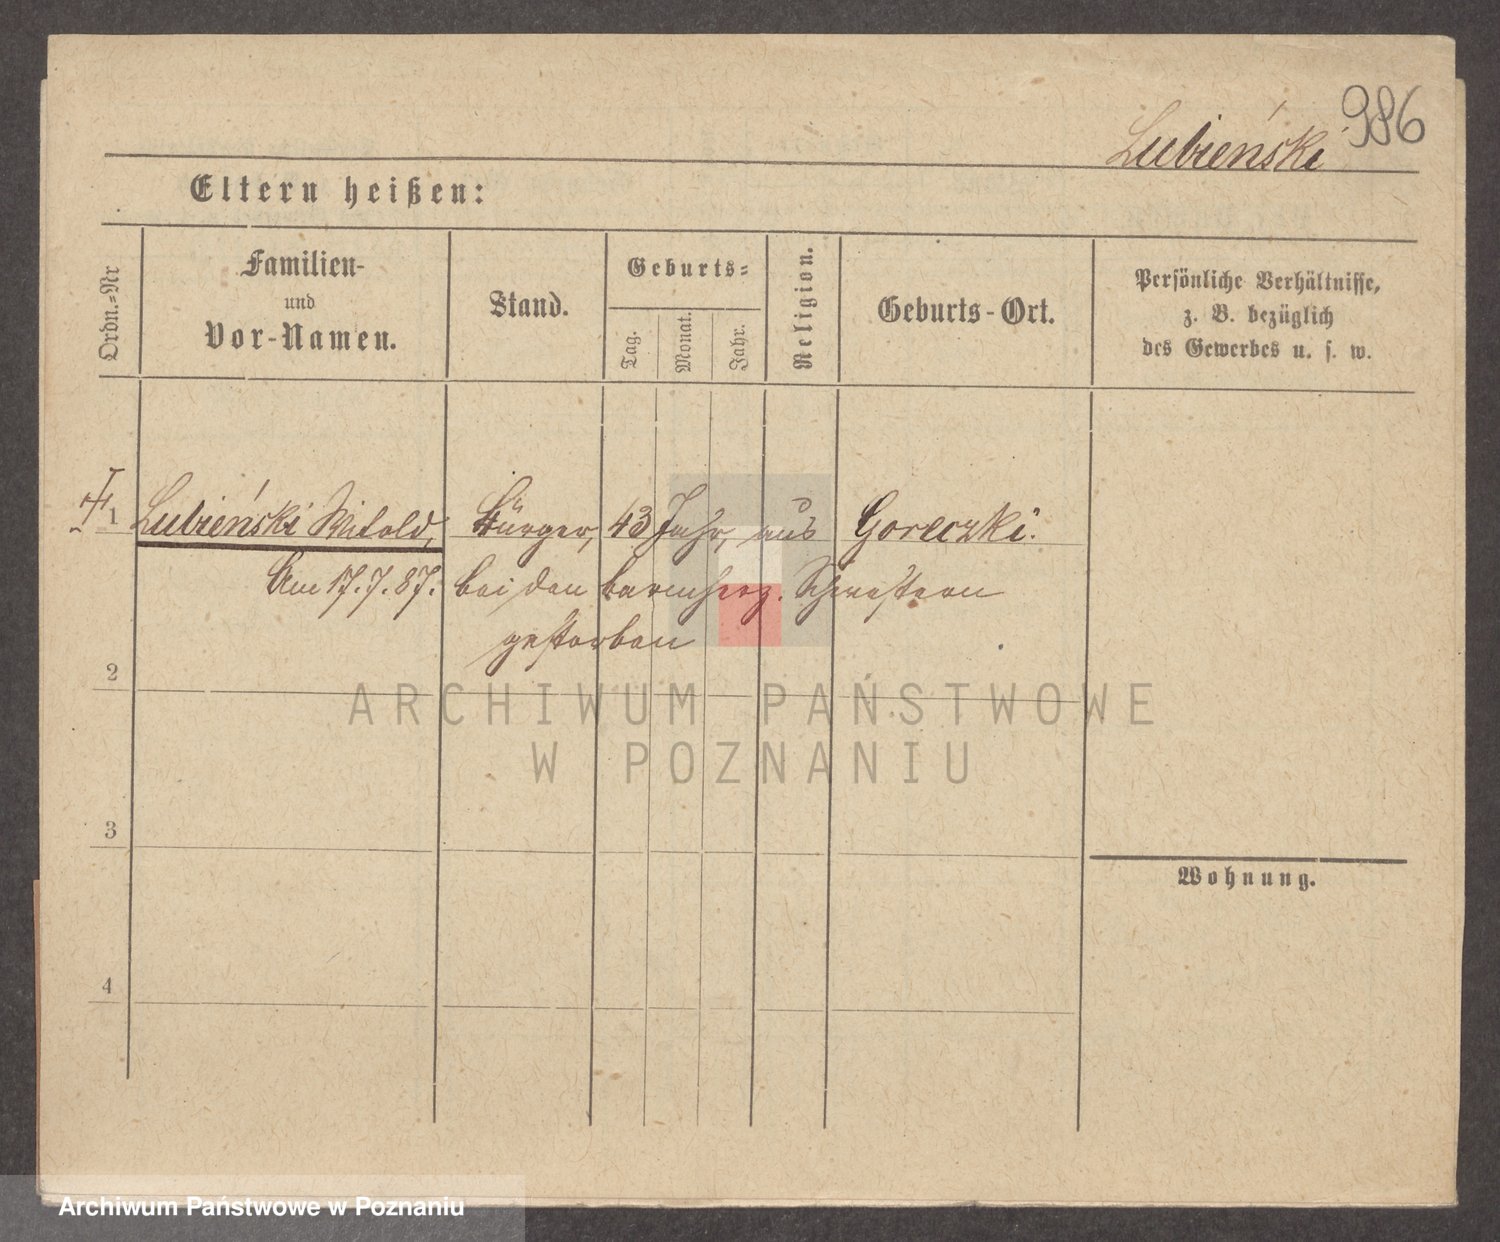 986
Lubieński
Eltern heißen:
Ordn.=Nr
Familien-
und
Vor-Namen.
Stand.
Geburts=
Tag.
Monat.
Jahr.
Religion.
Geburts-Ort.
Persönliche Verhältnisse,
z. B. bezüglich
des Gewerbes u. s. w.
1 Lubieński Witold, Bürger, 43 Jahr, aus Goreczki.
Am 17.7.87. bei den barmherz. Schwestern
gestorben
2
3
4
Wohnung.
ARCHIWUM PAŃSTWOWE
W POZNANIU
Archiwum Państwowe w Poznaniu